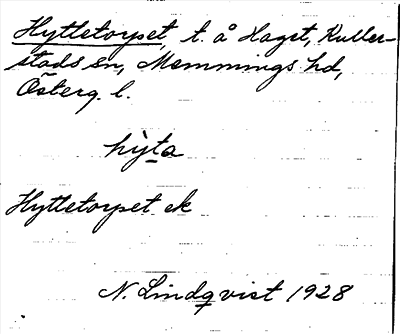 Hyttetorpet, t. å Haget, Kuller-
stads sn, Memmings hd,
Österg. l.
hyta
Hyttetorpet ek
N. Lindqvist 1928